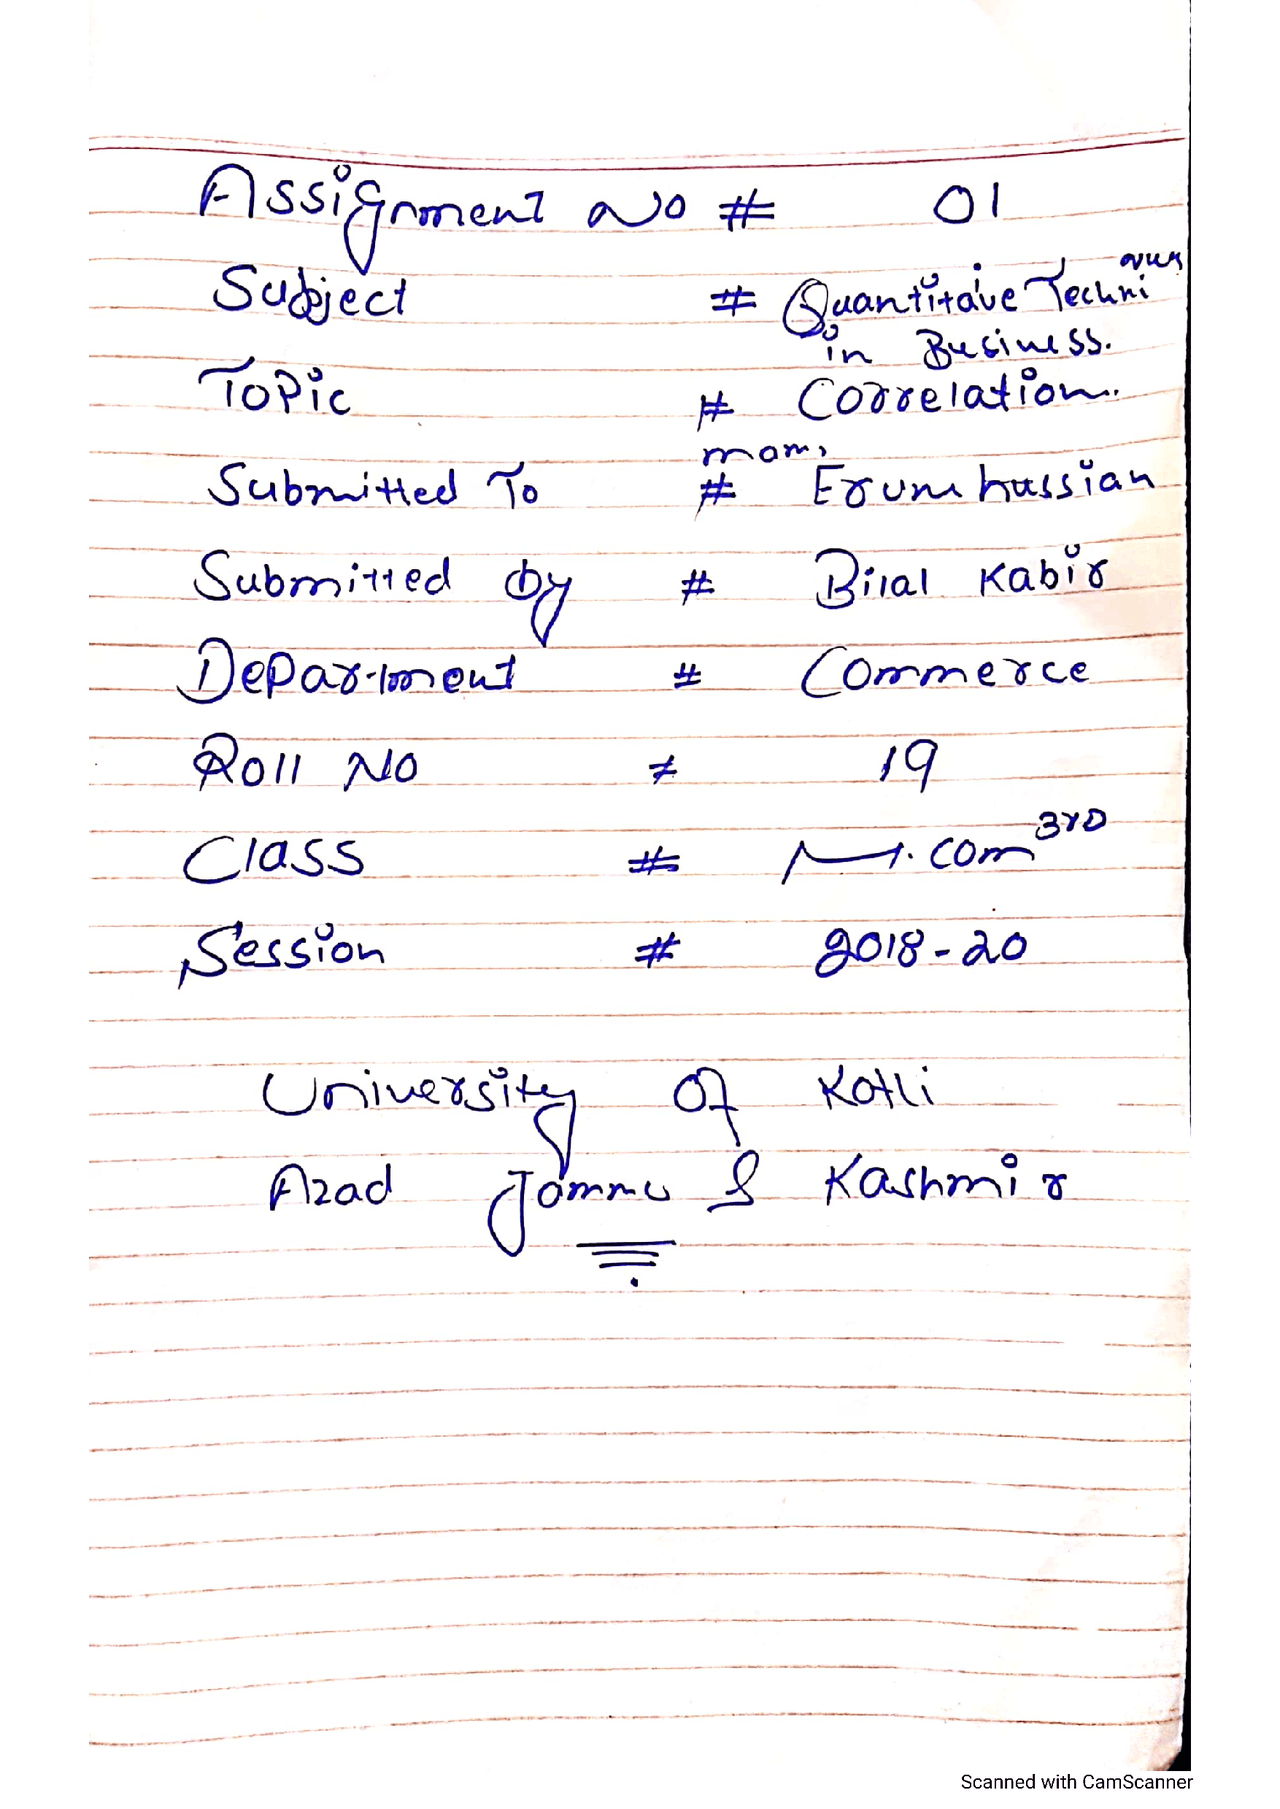 Assignment No # 01
Subject # Quantitaive Techniques
in Business.
Topic # Correlation.
mam,
Submitted To # Erum hussian
Submitted by # Bilal Kabir
Department # Commerce
Roll No # 19
Class # M.com 3rd
Session # 2018-20
University Of Kotli
Azad Jammu & Kashmir
Scanned with CamScanner